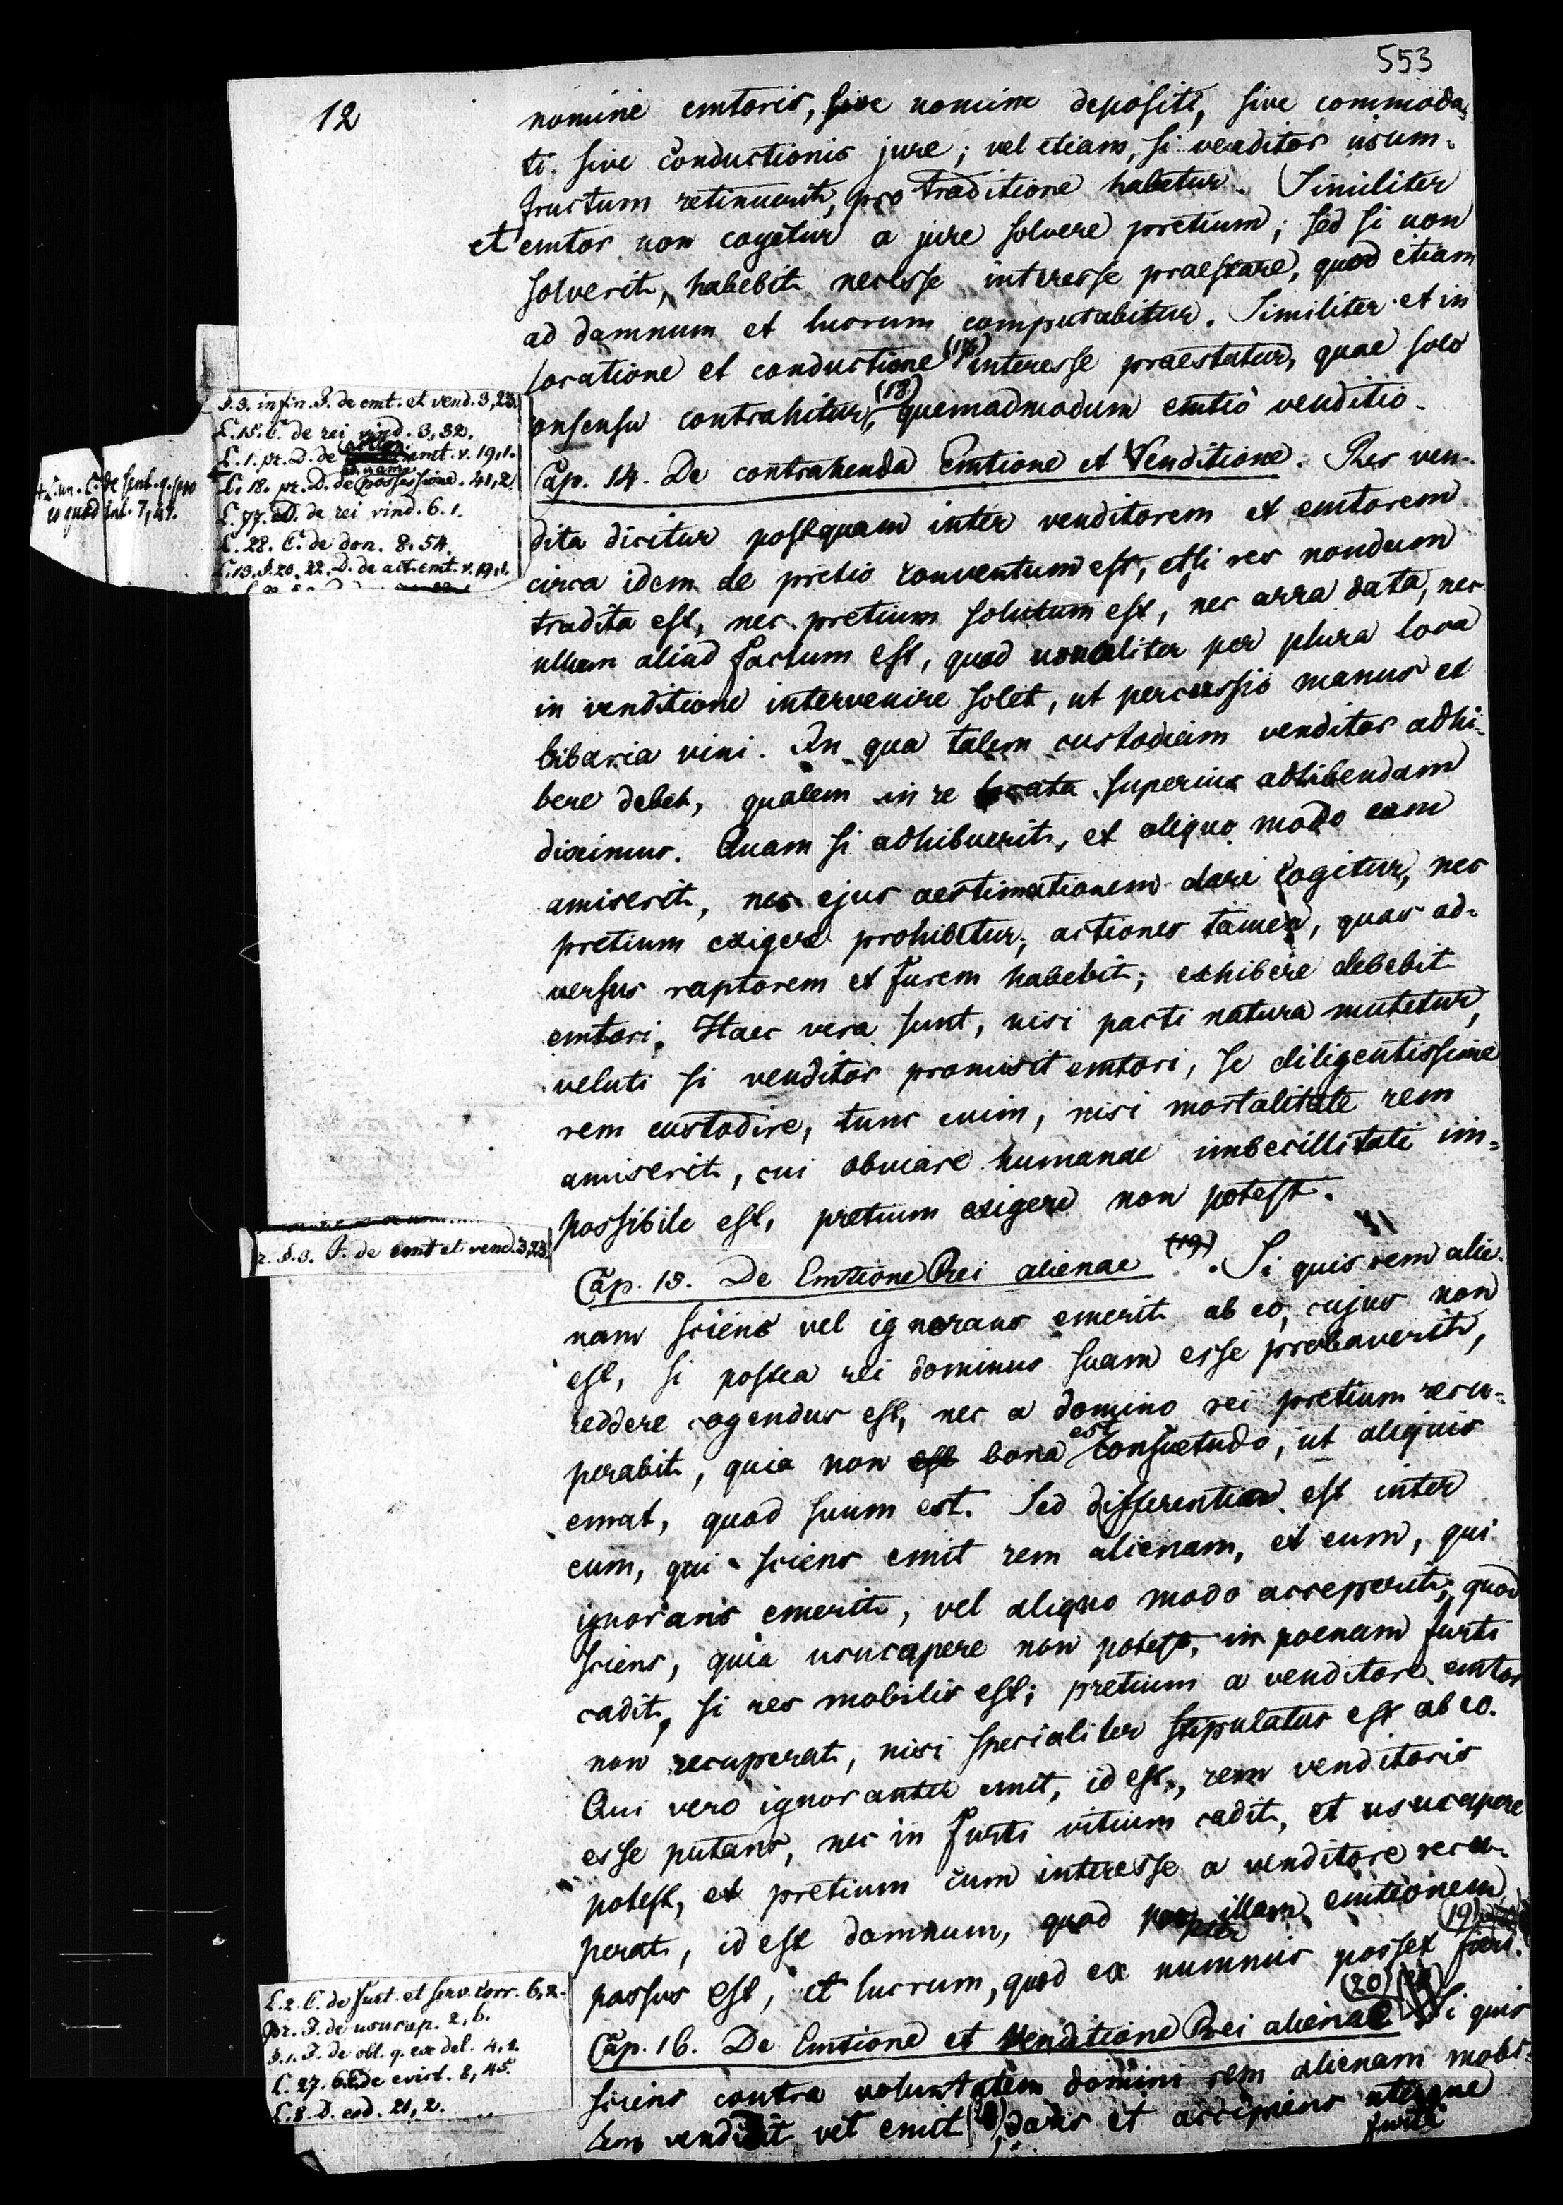 553
12
nomine emtoris, sive nomine depositi, sive commoda-
ti sive conductionis jure; vel etiam, si venditor usum-
fructum retinuerit, pro traditione habetur. Similiter
et emtor non cogetur a jure solvere pretium; sed si non
solverit, habebit necesse interesse praestare, quod etiam
ad damnum et lucrum computabitur. Similiter et in
locatione et conductione interesse praestatur, quae solo
onsensu contrahitur, (18) quemadmodum emtio venditio.
Cap. 14. De contrahenda Emtione et Venditione. Res ven-
dita dicitur postquam inter venditorem et emtorem
circa idem de pretio conventum est, etsi res nondum
tradita est, nec pretium solutum est, nec arra data, nec
ullum aliud factum est, quod per plura loca
in venditione intervenire solet, ut percussio manus et
bibaria vini. In qua talem custodiam venditor adhi-
bere debet, qualem in re superius adhibendam
diximus. Quam si adhibuerit, et aliquo modo eam
amiserit, nec ejus aestimationem dare cogitur, nec
pretium exigere prohibetur, actiones tamen, quas ad-
versus raptorem et furem habebit; exhibere debebit
emtori. Haec vera sunt, nisi pacti natura mutetur,
veluti si venditor promisit emtori, se diligentissime
rem custodire, tunc enim, nisi mortalitate rem
amiserit, cui obviare humanae imbecillitati im-
possibile est, pretium exigere non potest.
Cap. 15. De Emtione Rei alienae (19). Si quis rem alie-
nam sciens vel ignorans emerit ab eo, cujus non
est, si postea rei dominus suam esse probaverit,
reddere cogendus est, nec a domino rei pretium recu-
perabit, quia non est bona est consuetudo, ut aliquis
emat, quod suum est. Sed differentia est inter
eum, qui sciens emit rem alienam, et eum, qui
ignorans emerit, vel aliquo modo acceperit; quod
sciens, quia usucapere non potest, in poenam furti
cadit, si res mobilis est; pretium a venditore emtor
non recuperat, nisi specialiter stipulatus est ab eo.
Qui vero ignoranter emit, id est, rem venditoris
esse putans, nec in furti vitium cadit, et usucapere
potest, et pretium cum interesse a venditore recu-
perat, id est damnum, quod propter illam emtionem
passus est, et lucrum, quod ex nummis posset fieri. (19)
Cap. 16. De Emtione et Venditione Rei alienae (20) Si quis
sciens contra voluntatem domini rem alienam mobi-
lem vendidit vel emit, dans et accipiens uterque
furti
§.3. in fin. J. de emt. et vend. 3,23.
L.15. C. de rei vind. 3,32.
L.1. pr. D. de action. emt. v. 19,1.
L. 18. pr. D. de possessione. 41,2.
L. 77. D. de rei vind. 6.1.
L. 28. C. de don. 8.54.
L.13. §.20. 22. D. de act. emt. v. 19,1.
L. un. C. de sent. q. pro
eo quod int. 7,47.
§.3. J. de emt et vend. 3,23.
L.2. C. de furt. et serv. corr. 6,2.
pr. J. de usucap. 2,6.
§.1. J. de obl. q. ex del. 4,1.
L. 27. C. de evict. 8,45.
L. 8. D. eod. 21,2.